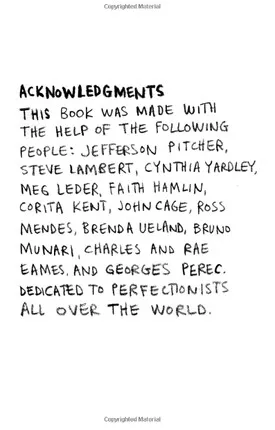 Copyrighted Material
ACKNOWLEDGMENTS
THIS BOOK WAS MADE WITH
THE HELP OF THE FOLLOWING
PEOPLE: JEFFERSON PITCHER,
STEVE LAMBERT, CYNTHIA YARDLEY,
MEG LEDER, FAITH HAMLIN,
CORITA KENT, JOHN CAGE, ROSS
MENDES, BRENDA UELAND, BRUNO
MUNARI, CHARLES AND RAE
EAMES, AND GEORGES PEREC.
DEDICATED TO PERFECTIONISTS
ALL OVER THE WORLD.
Copyrighted Material